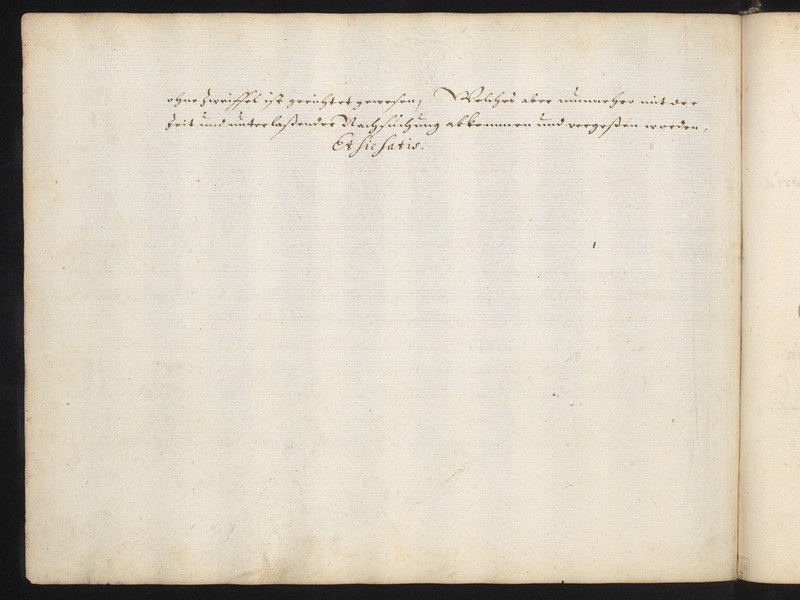 ohne Zweiffel ist gerichtet gewesen, Welches aber nunmehro mit der
Zeit und unterlaßender Nachsuchung abkommen und vergeßen worden,
Et sic satis.